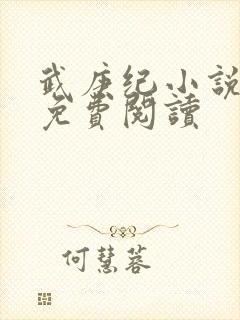 武庚纪小說
免費閱讀
何慧蓉